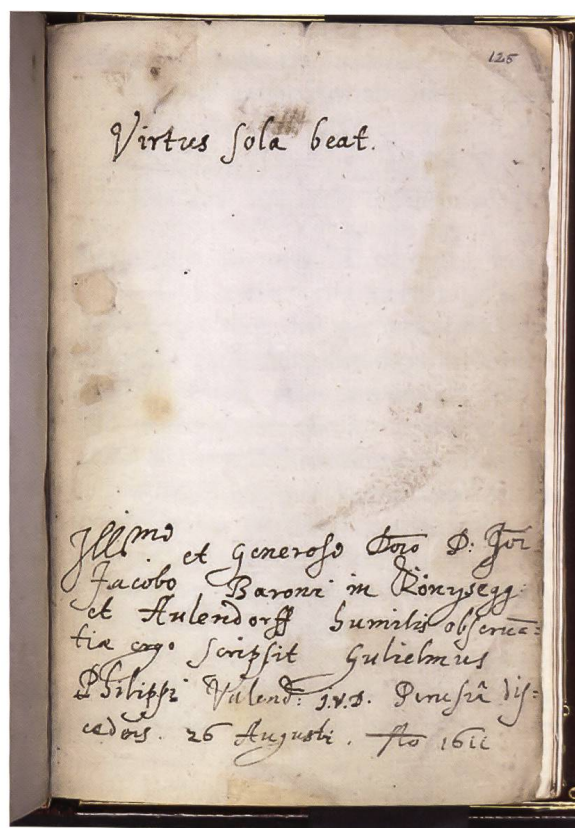 125
Virtus sola beat.
Illmo et Generoso Dno D: Joi
Jacobo Baroni in Königsegg
et Aulendorff humilis observan=
tiæ ergo scripsit Gulielmus
Philippi J.V.D. Perusiâ dis=
cedens. 26 Augusti. Ao 1611